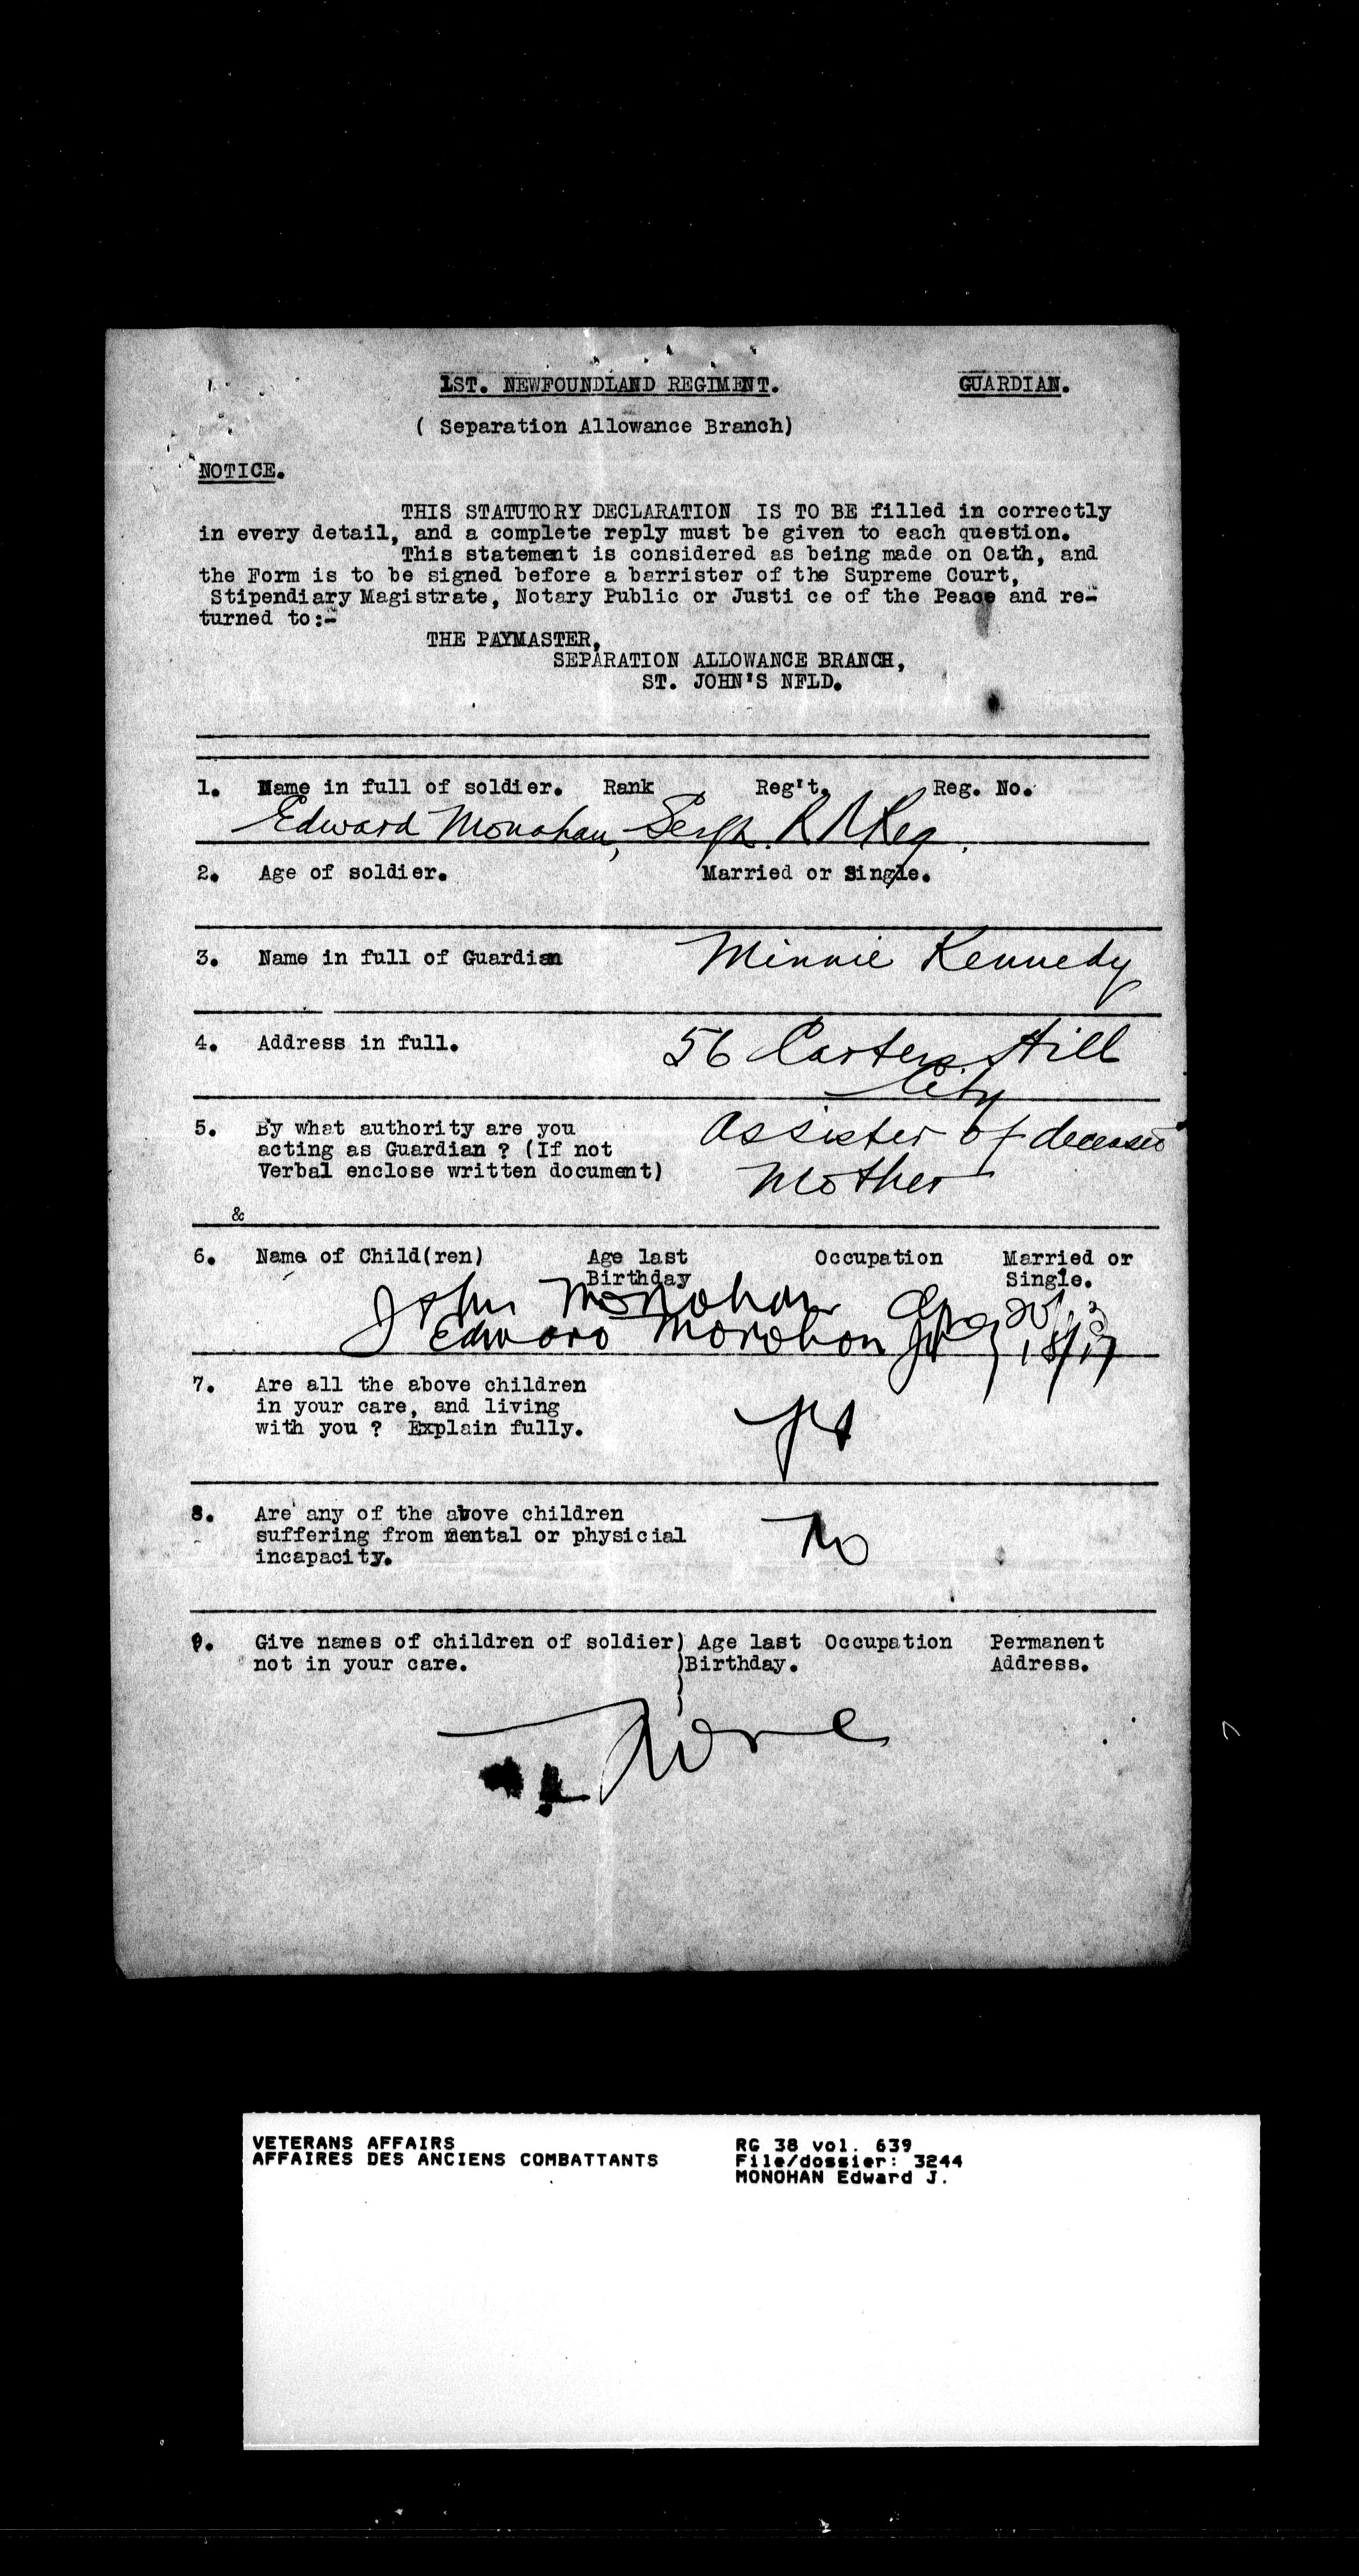 1ST. NEWFOUNDLAND REGIMENT. GUARDIAN.
( Separation Allowance Branch)
NOTICE.
THIS STATUTORY DECLARATION IS TO BE filled in correctly
in every detail, and a complete reply must be given to each question.
This statement is considered as being made on Oath, and
the Form is to be signed before a barrister of the Supreme Court,
Stipendiary Magistrate, Notary Public or Justi ce of the Peace and re-
turned to:-
THE PAYMASTER,
SEPARATION ALLOWANCE BRANCH,
ST. JOHN'S NFLD.
1. Name in full of soldier. Rank Reg't. Reg. No.
Edward Monohan, Sergt. R N Reg.
2. Age of soldier. Married or Single.
3. Name in full of Guardian Minnie Kennedy
4. Address in full. 56 Carters Hill
City
5. By what authority are you As sister of deceased
acting as Guardian ? (If not
Verbal enclose written document) Mother
&
6. Name of Child(ren) Age last Occupation Married or
Birthday Single.
John Monohan
Edward Monohon
7. Are all the above children
in your care, and living yes
with you ? Explain fully.
8. Are any of the above children
suffering from mental or physicial No
incapacity.
9. Give names of children of soldier) Age last Occupation Permanent
not in your care. )Birthday. Address.
None
VETERANS AFFAIRS RG 38 vol. 639
AFFAIRES DES ANCIENS COMBATTANTS File/dossier: 3244
MONOHAN Edward J.